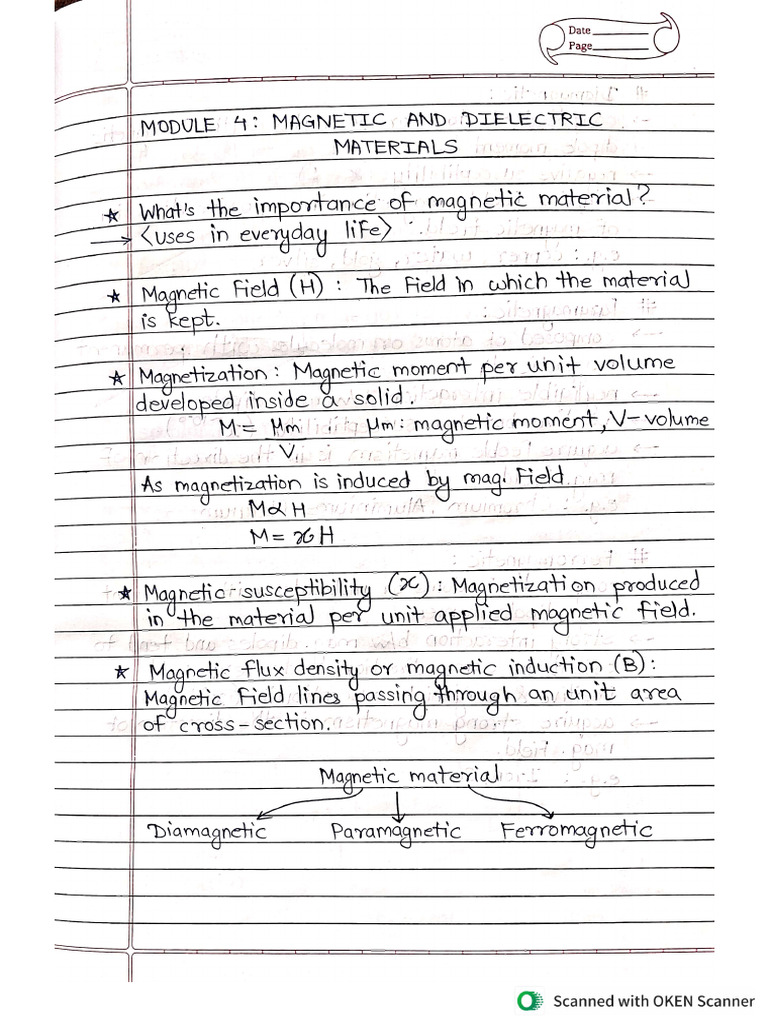 Date
Page
MODULE 4: MAGNETIC AND DIELECTRIC
MATERIALS
☆ What's the importance of magnetic material?
→ <uses in everyday life>
☆ Magnetic field (H) : The field in which the material
is kept.
☆ Magnetization : Magnetic moment per unit volume
developed inside a solid.
M = μm / V    μm : magnetic moment, V - volume
As magnetization is induced by mag. field
M ∝ H
M = χ H
☆ Magnetic susceptibility (χ) : Magnetization produced
in the material per unit applied magnetic field.
☆ Magnetic flux density or magnetic induction (B) :
Magnetic field lines passing through an unit area
of cross-section.
Magnetic material
Diamagnetic Paramagnetic Ferromagnetic
Scanned with OKEN Scanner